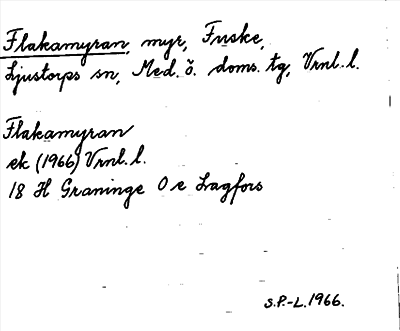 Flakamyran, myr, Fuske,
Ljustorps sn, Med. ö. doms. tg, Vrnl. l.
Flakamyran
ek (1966) Vrnl. l.
18 H Graninge 0 e Lagfors
S.P.-L. 1966.